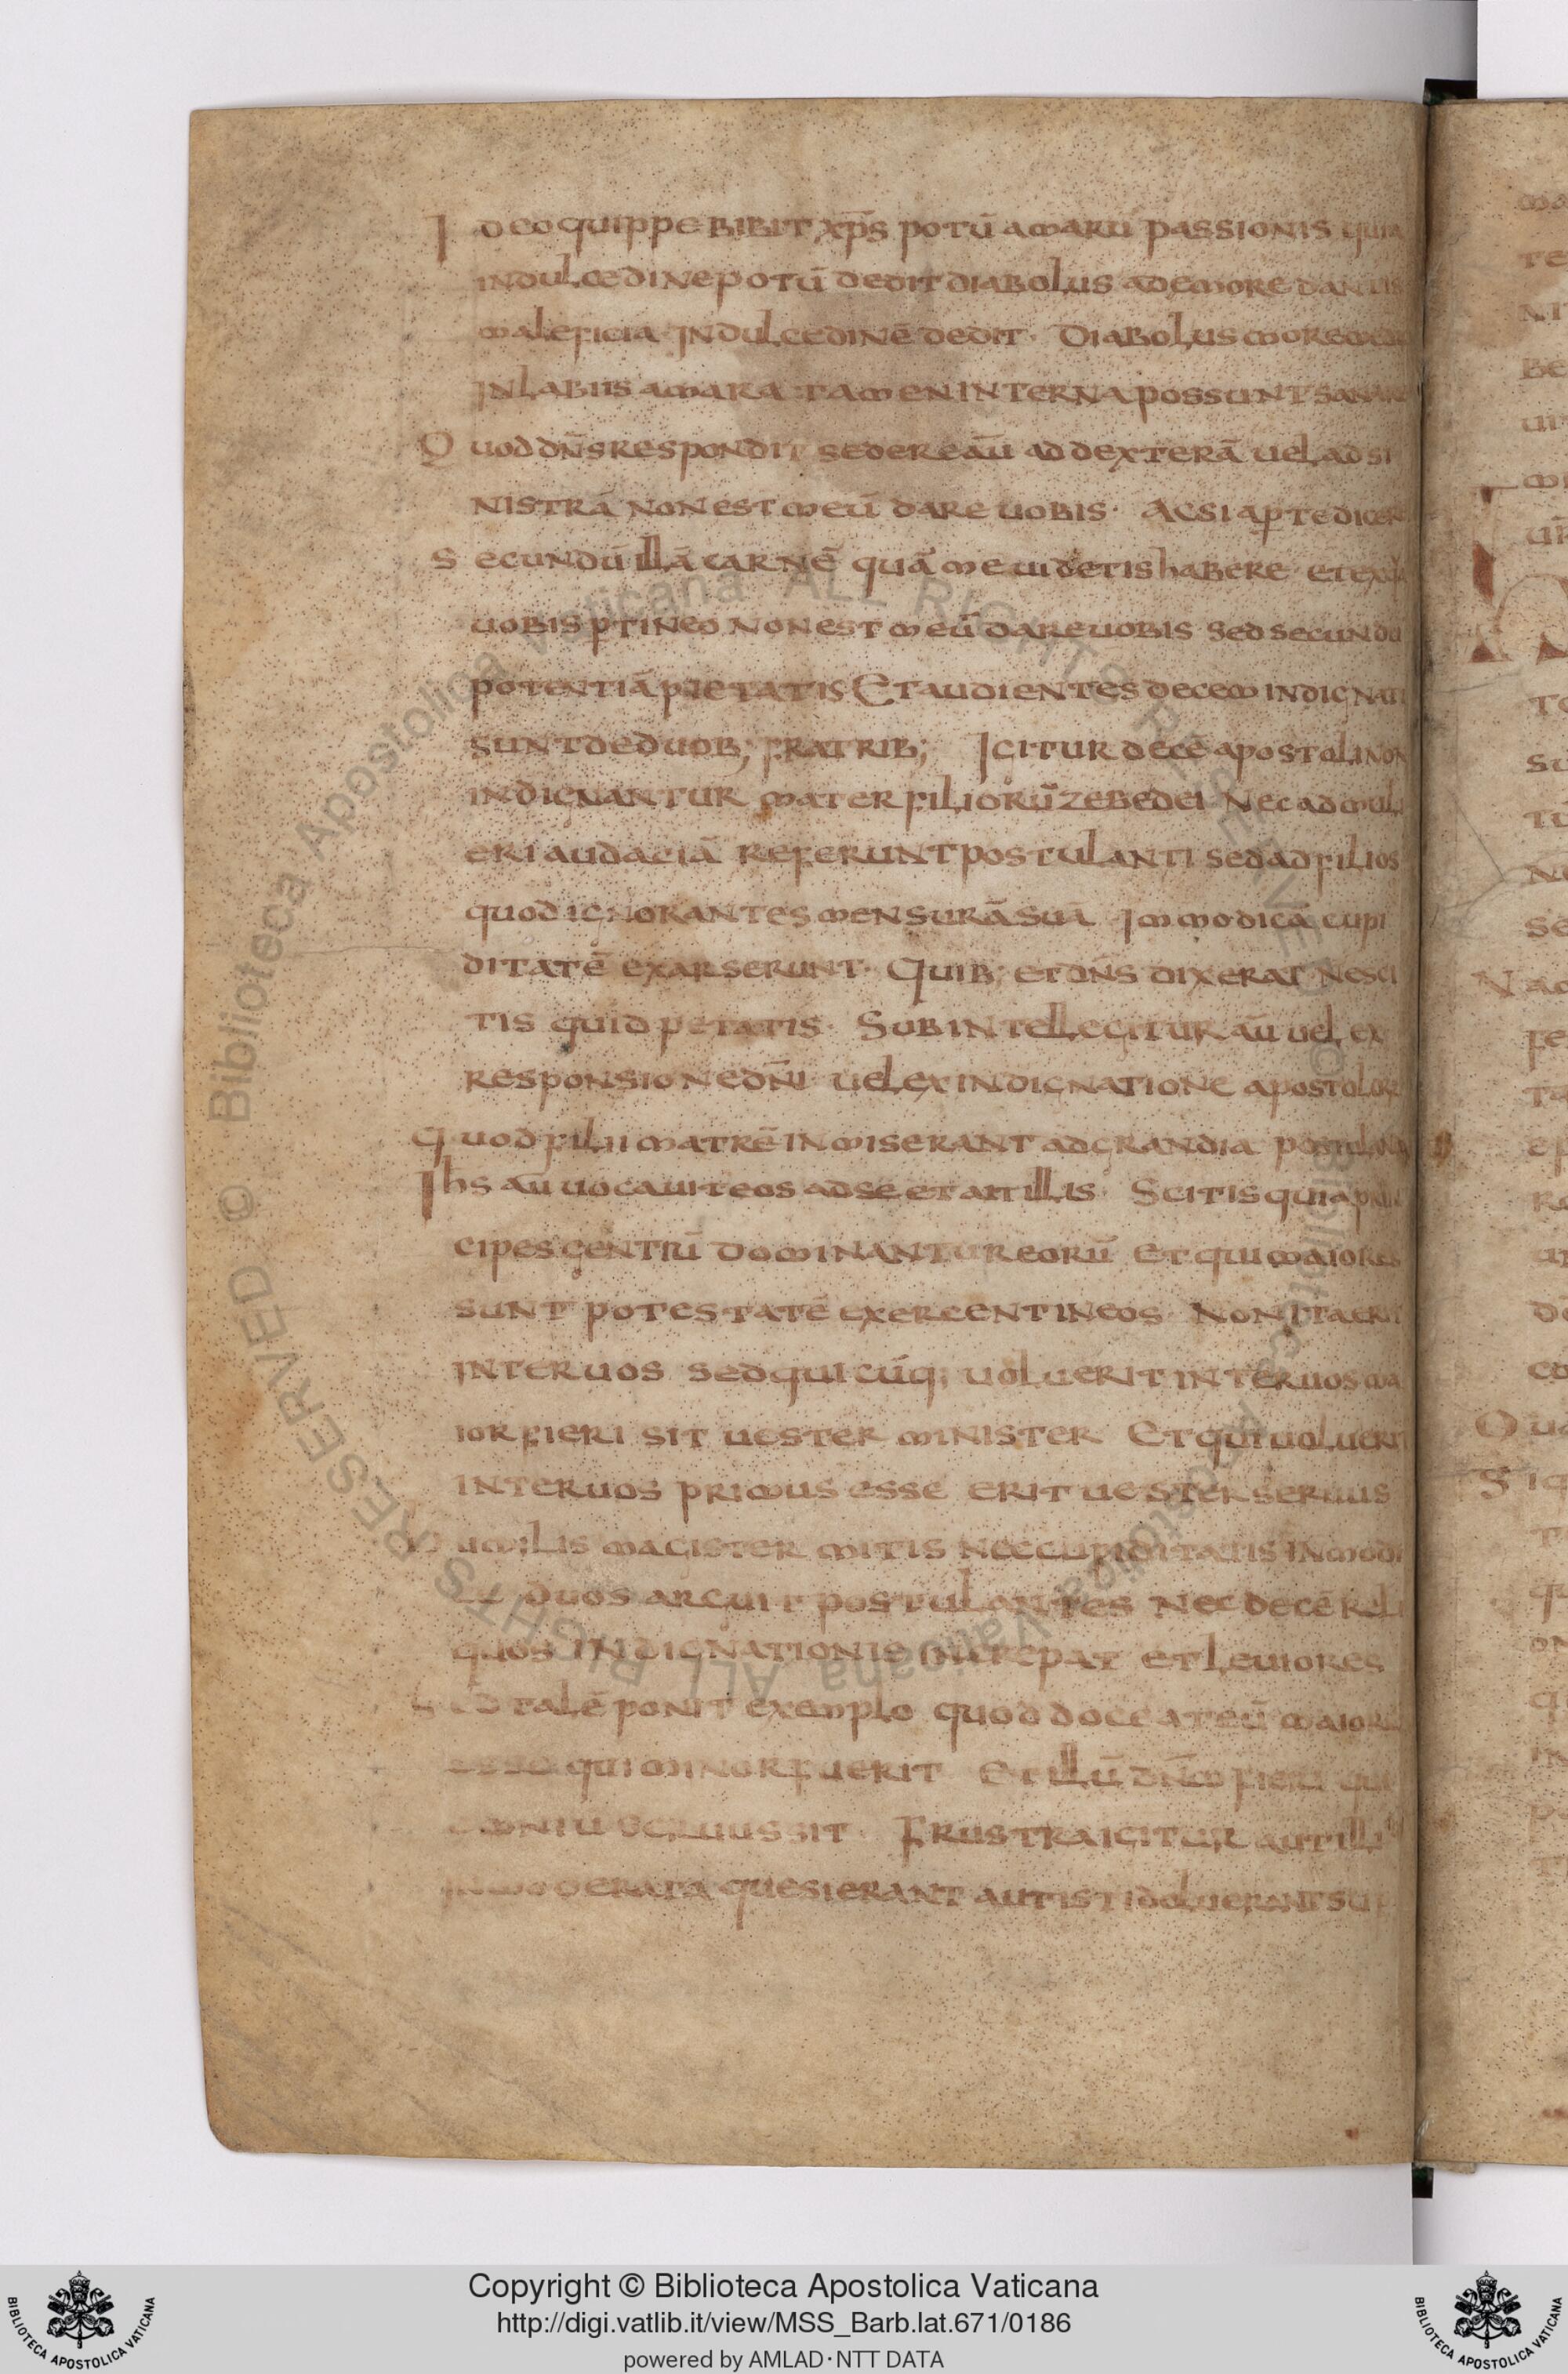 Ideo quippe bibit xp̄s potū amarū passionis quia
in dulcedine potū dedit diabolus ad emore
maleficia in dulcedinē dedit · Diabolus more
in labiis amara tamen interna possunt
Quod dn̄s respondit sedere aū ad dexterā uel ad si
nistrā non est meū dare uobis · Ac si apte dicer
Secundū illā carnē quā me uidetis habere et
uobis ptineo non est meū dare uobis sed secundū
potentiā pietatis Et audientes decem indignati
sunt de duob; fratrib; Igitur decē apostoli non
indignantur mater filiorū zebedei Nec ad muli
eri audaciā referunt postulanti sed ad filios
quod ignorantes mensurā suā Immodicā cupi
ditatē exarserunt · Quib; et dn̄s dixerat nesci
tis quid petatis · Subintellegitur aū uel ex
responsione dn̄i uel ex indignatione apostolorū
Quod filii matrē inmiserant ad grandia
Ihs aū uocauit eos ad se et ait illis · Scitis quia prin
cipes gentiū dominantur eorū et qui maiores
sunt potestatē exercent in eos · Non ita erit
inter uos sed qui cūq; uoluerit inter uos ma
ior fieri sit uester minister Et qui uoluerit
inter uos primus esse erit uester seruus
Humilis magister mitis nec cupiditatis inmodi
duos arguit postulantes Nec decē reli
quos indignationis increpat et leuiores
Sed talē ponit exemplo quod doceat eū maiorē
esse qui minor fuerit Et illū dn̄m fieri qui
omniū seruus sit · Frustra igitur aut illi
inmoderata quesierant aut isti doluerant sup
Copyright © Biblioteca Apostolica Vaticana
http://digi.vatlib.it/view/MSS_Barb.lat.671/0186
powered by AMLAD·NTT DATA
BIBLIOTECA APOSTOLICA VATICANA
BIBLIOTECA APOSTOLICA VATICANA
© Biblioteca Apostolica Vaticana ALL RIGHTS RESERVED
© Biblioteca Apostolica Vaticana ALL RIGHTS RESERVED